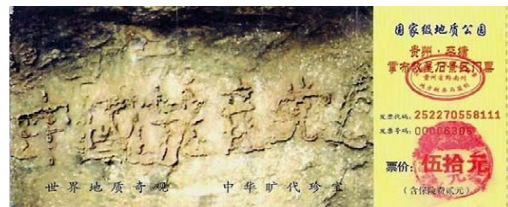 中国共产党
世界地质奇观 中华旷代珍宝
国家级地质公园
贵州·平塘
掌布
景区门票
发票代码: 252270558111
发票号码: 00006306
票价: 伍拾元
(含保险费贰元)